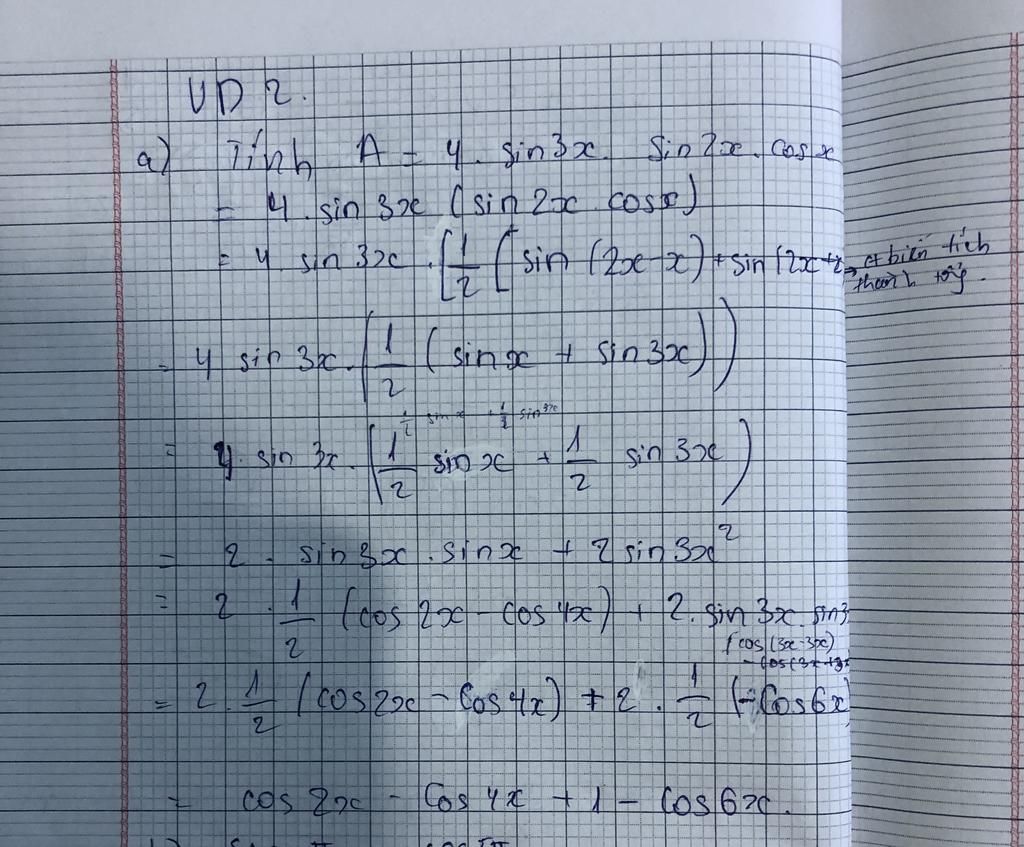 VD 2.
a) Tính A = 4. sin3x. sin2x. cosx
= 4. sin 3x (sin 2x cosx)
= 4. sin 3x. [1/2 [sin (2x-x) + sin (2x+x → ct biến tích
thành tổng.
= 4 sin 3x. (1/2 (sinx + sin 3x))
1/2 sin x + 1/2 sin3x
= 4. sin 3x. (1/2 sin x + 1/2 sin 3x)
= 2. sin 3x. sin x + 2 sin 3x²
= 2. 1/2 (cos 2x - cos 4x) + 2. sin 3x. sin3
(cos (3x-3x)
- cos(3x+3x
= 2. 1/2 (cos2x - Cos 4x) + 2. 1/2 (- Cos6x)
= cos 2x - Cos 4x + 1 - Cos 6x.